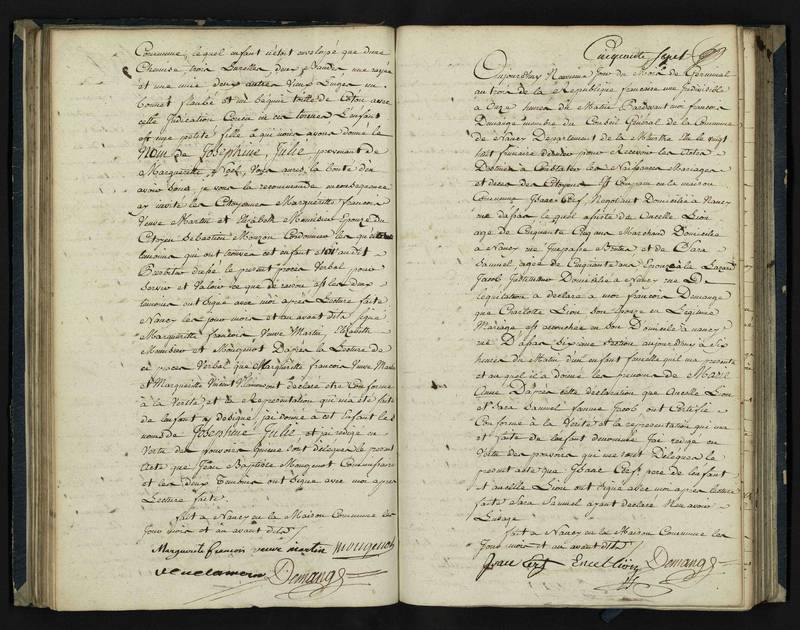 Commune, lequel enfant n'etoit envelopé que d'une
Chemise, trois Linettes, deux Bandes une rayée
et une unie deux autres vieux Linges, un
bonnet
cette Indication Cousu sur ces termes L'enfant
est une petite fille à qui nous avons donné le
Nom de Josephine, Julie provenant de
Marguerite Noel, vous aurez la bonté d'en
avoir soin, je vous la recommande
ay invité les Citoyennes Marguerite francois
Veuve Martin et Elizabeth Monsieur Epouse du
Citoyen Sebastien Mouzon Cordonnier les
temoins qui ont trouvés cet enfant
dressé le present proces Verbal pour
Servir et Valoir ce que de raison et les deux
temoins ont signé avec moi après Lecture faite
a Nancy les jour mois et an avant dits Signé
Marguerite francois, Veuve Martin, Elizabeth
et Mougenot D'après la Lecture de
ce proces Verbal que Marguerite francois Veuve Martin
et Marguerite ont declaré etre Conforme
à la Verité et la Representation qui m'a été faite
de l'enfant y designé, j'ai donné à cet Enfant les
noms de Josephine Julie, et j'ai redigé en
Vertu des pouvoirs qui me sont delegués le present
acte que Jean Baptiste Mougenot Commissaire
et les deux temoins ont signé avec moi apres
Lecture faite.
fait a Nancy en la Maison Commune les
Jour mois et an avant dits
Marguerite francois veuve martin mougenot
Demange
Cinquante Sept
Aujourdhuy Neuvieme Jour du Mois de Germinal
au trois de la Republique francaise une Indivisible
à onze heures du Matin Pardevant moi francois
Demange membre du Conseil General de la Commune
de Nancy Departement de la Meurthe elu le vingt
huit frimaire dernier pour Recevoir les actes
Destinés à Constater les Naissances Mariages
et deces des Citoyens Est Comparu en la maison
Commune Isaac Cerf, Negotiant Domicilié à Nancy
rue le quel assisté de Ancelle Lion
agé de Cinquante Cinq ans Marchand Domicilié
à Nancy rue et de Sara
Samuel, agée de Cinquante ans Epouse à Lazard
Jacob Domiciliée à Nancy rue de
Legislation a declaré a moi francois Demange
que Charlotte Lion son Epouse en Légitime
Mariage est accouchée en son Domicile à nancy
rue section aujourdhuy à six
heures du Matin d'un enfant femelle qu'il m'a presenté
et auquel il a donné les prenoms de Marie
Anne D'après cette déclaration que Ancelle Lion
et Sara Samuel femme Jacob ont Certifié
Conforme à la Verité et la representation qui m'a
été faite de l'enfant denommé j'ai redigé en
Vertu des pouvoirs qui me sont Delégués le
present acte que Isaac Cerf pere de l'enfant
et ancelle Lion ont signé avec moi apres lecture
faite Sara Samuel ayant declaré N'en avoir
L'usage
fait a Nancy en la Maison Commune les
Jour mois et an avant dits
Isaac Cerf Demange